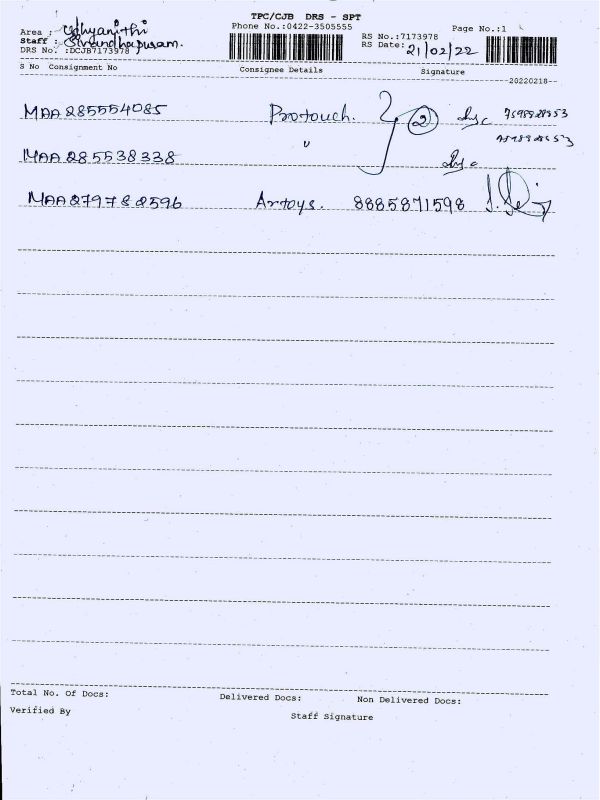 TPC/CJB DRS - SPT
Area : Udhyanithi Phone No.:0422-3505555 RS No.:7173978 Page No.:1
Staff : Sivandhapuram. RS Date: 21/02/22
DRS No. :DCJB7173978
S No Consignment No Consignee Details Signature
--20220218--
MAA 285554085 Protouch. 2
MAA 285538338 "
MAA 279782596 Artoys. 8885871598
Total No. Of Docs: Delivered Docs: Non Delivered Docs:
Verified By Staff Signature